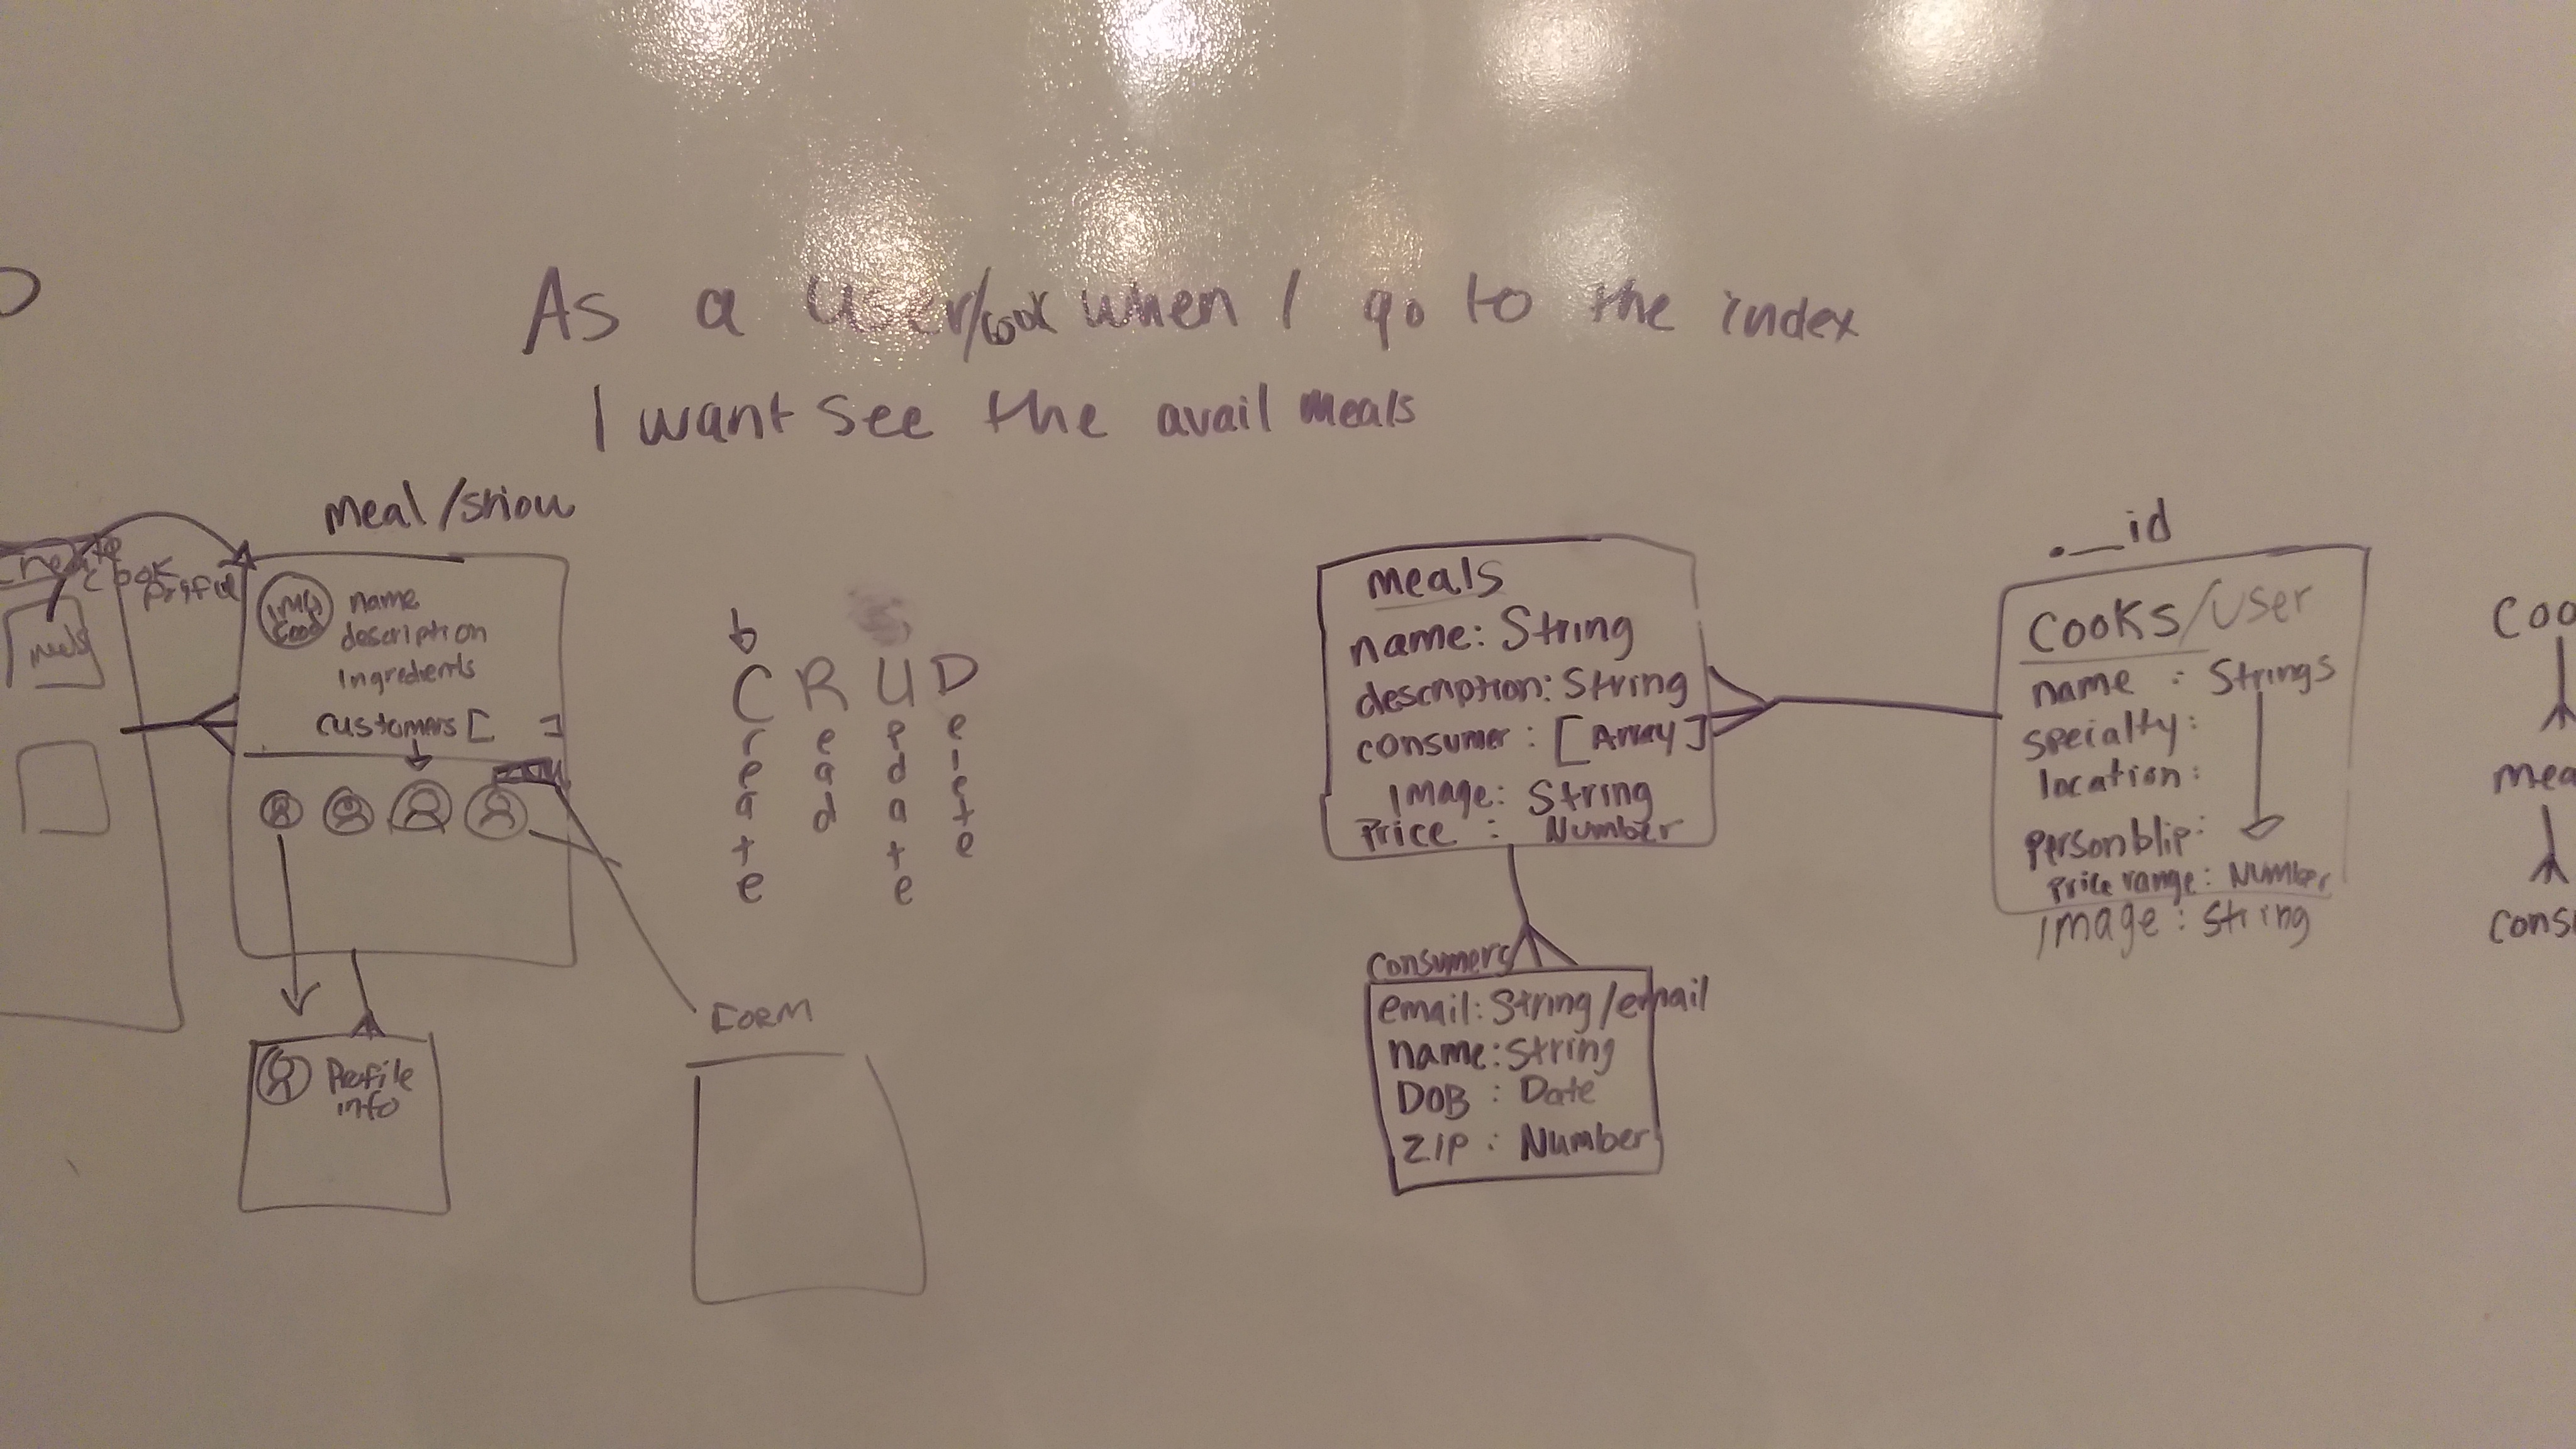 As a user/cook when I go to the index
I want see the avail meals
meal/show
Create
meals
IMG
food
name
description
Ingredients
customers [ ]
Profile
info
b
C R U D
Create
Read
Update
Delete
FORM
meals
name: String
description: String
consumer: [Array]
Image: String
Price : Number
Consumers
email: String/email
name: String
DOB : Date
ZIP : Number
._id
COOKS/User
name : Strings
specialty:
location:
personblip:
Price range: Number
Image: String
Coo
mea
cons